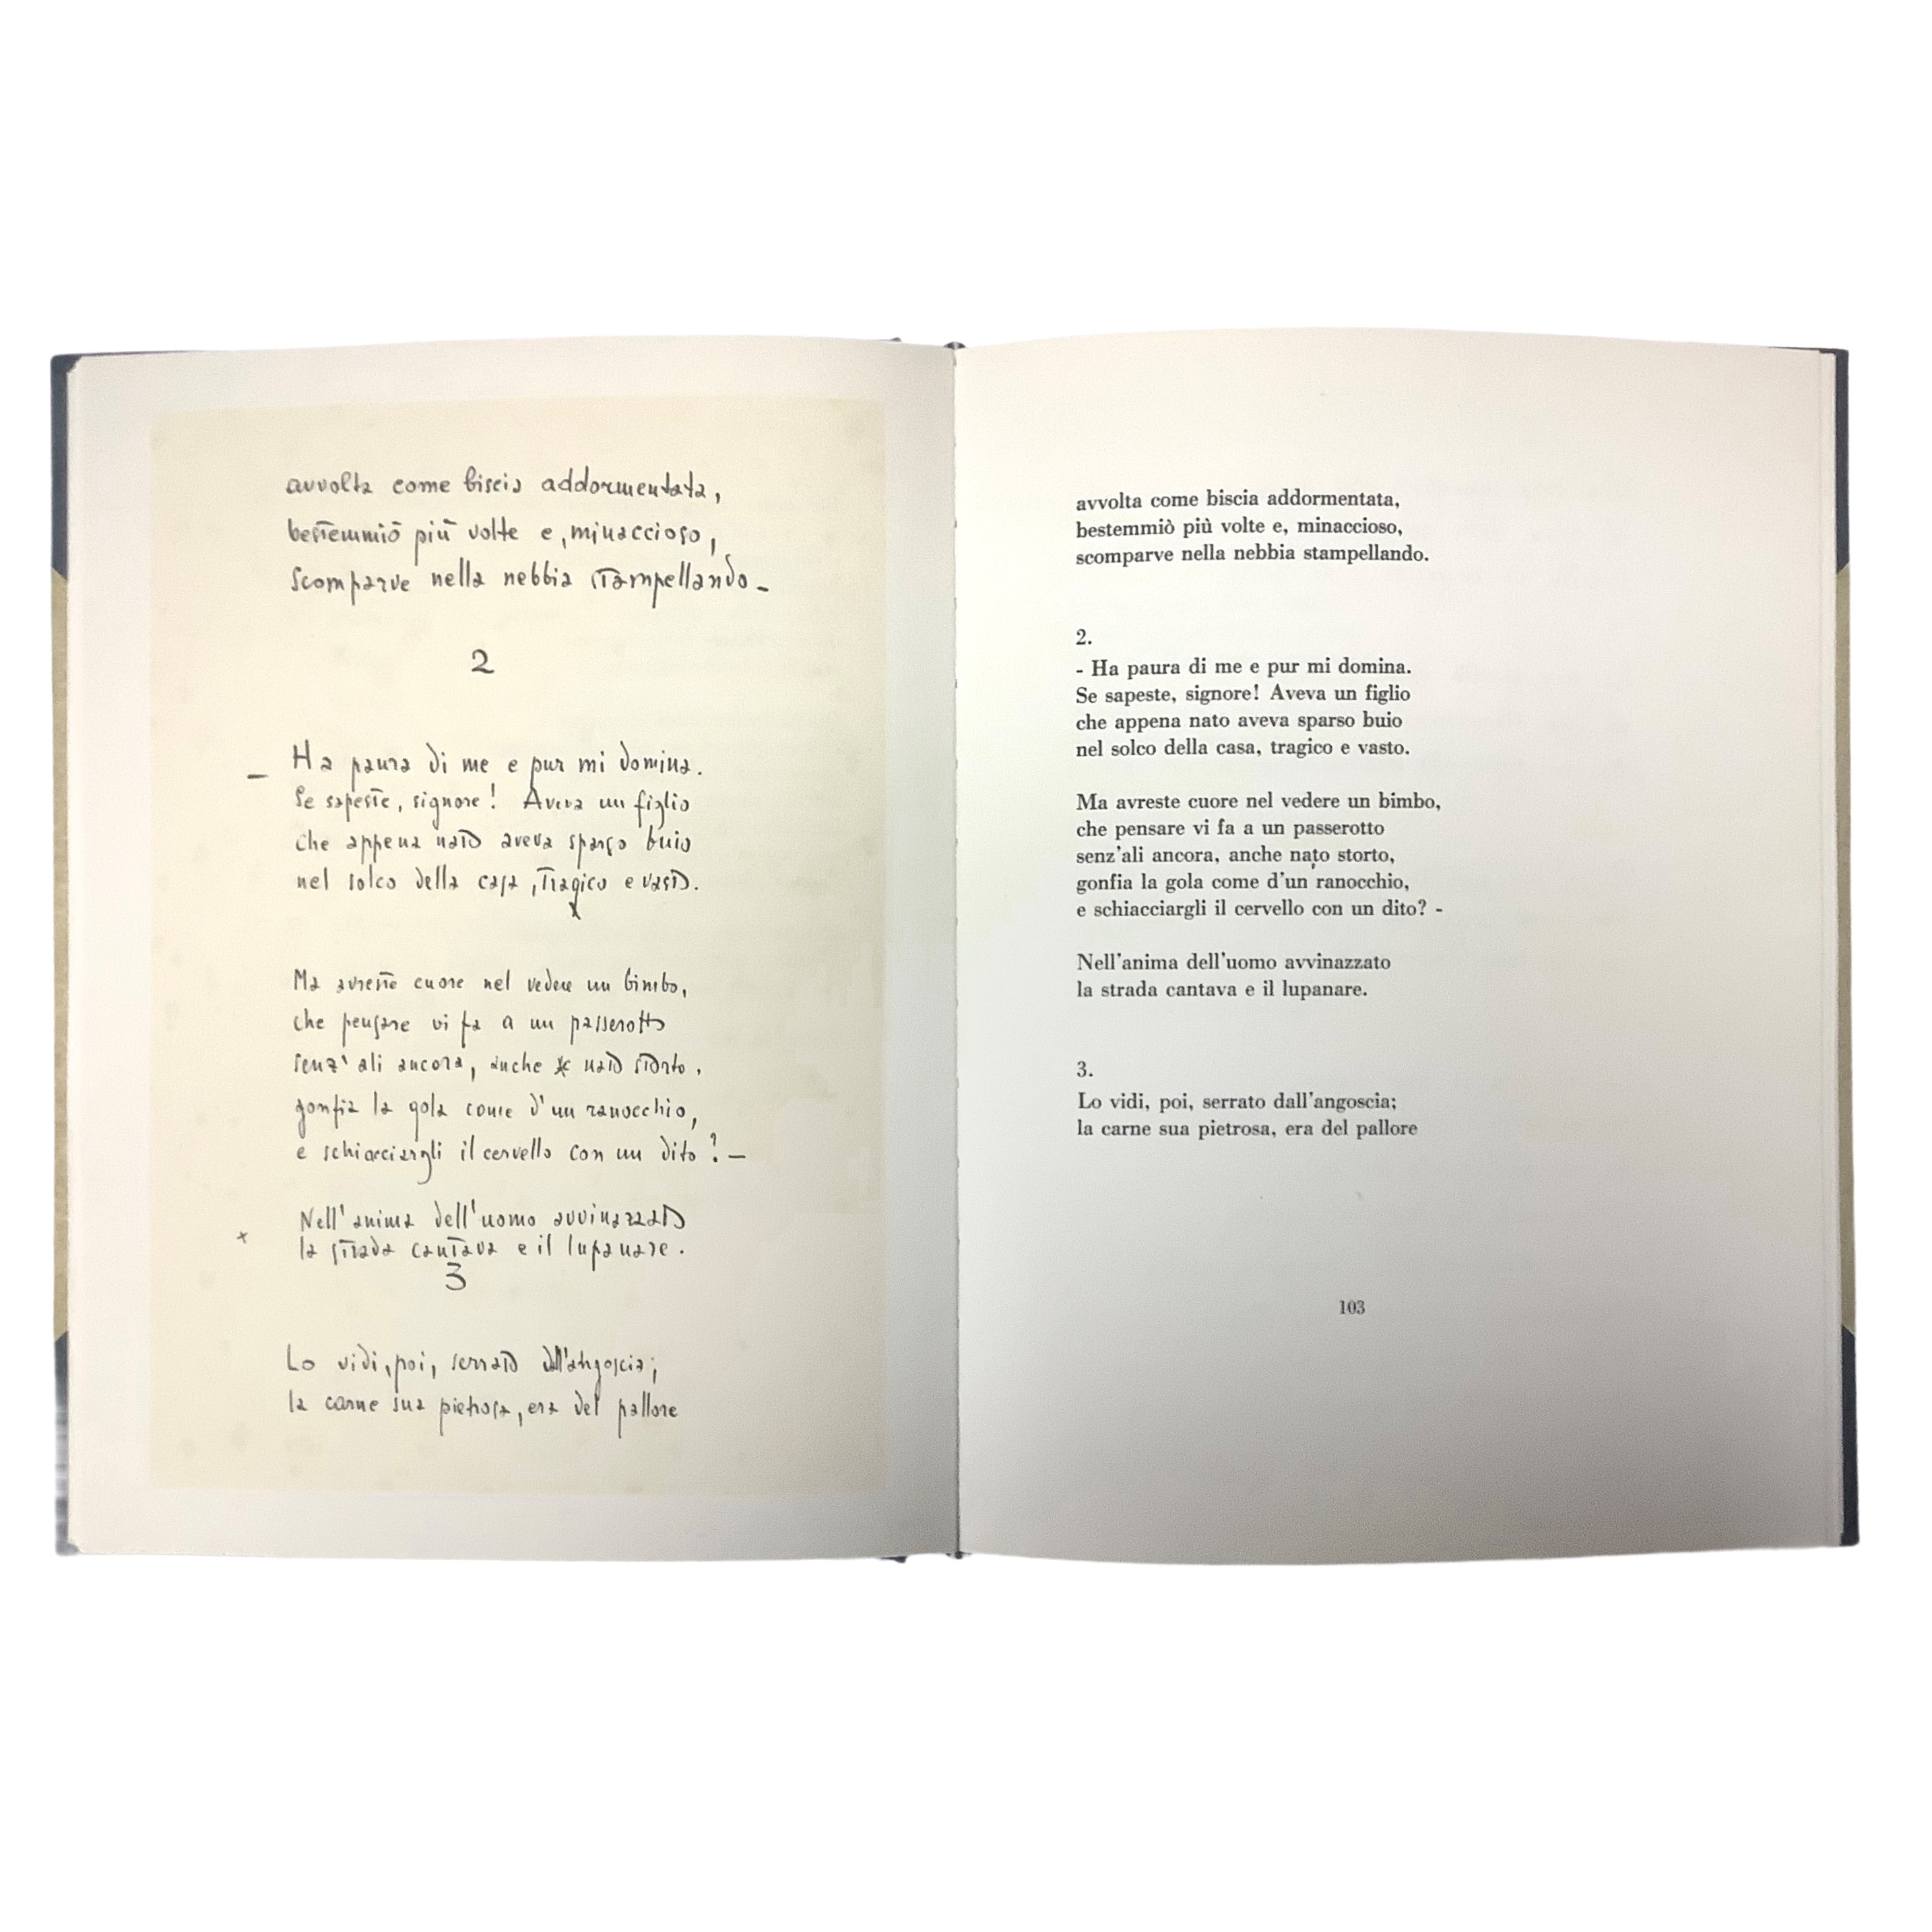 avvolta come biscia addormentata,
bestemmiò più volte e, minaccioso,
scomparve nella nebbia stampellando -
2
- Ha paura di me e pur mi domina.
Se sapeste, signore! Aveva un figlio
che appena nato aveva sparso buio
nel solco della casa, tragico e vasto.
x
Ma avreste cuore nel vedere un bimbo,
che pensare vi fa a un passerotto
senz'ali ancora, anche nato storto,
gonfia la gola come d'un ranocchio,
e schiacciargli il cervello con un dito? -
Nell'anima dell'uomo avvinazzato
x la strada cantava e il lupanare.
3
Lo vidi, poi, serrato dall'angoscia;
la carne sua pietrosa, era del pallore
avvolta come biscia addormentata,
bestemmiò più volte e, minaccioso,
scomparve nella nebbia stampellando.
2.
- Ha paura di me e pur mi domina.
Se sapeste, signore! Aveva un figlio
che appena nato aveva sparso buio
nel solco della casa, tragico e vasto.
Ma avreste cuore nel vedere un bimbo,
che pensare vi fa a un passerotto
senz'ali ancora, anche nato storto,
gonfia la gola come d'un ranocchio,
e schiacciargli il cervello con un dito? -
Nell'anima dell'uomo avvinazzato
la strada cantava e il lupanare.
3.
Lo vidi, poi, serrato dall'angoscia;
la carne sua pietrosa, era del pallore
103